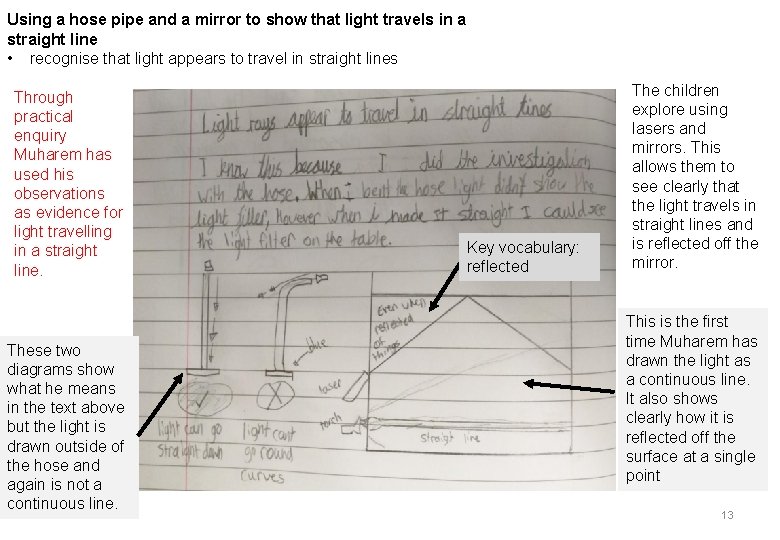 Using a hose pipe and a mirror to show that light travels in a
straight line
• recognise that light appears to travel in straight lines
Through
practical
enquiry
Muharem has
used his
observations
as evidence for
light travelling
in a straight
line.
Light rays appear to travel in straight lines
I know this because I did the investigation
with the hose. When I bent the hose light didn't show the
light filter, However when i made it straight I could see
the light filter on the table.
The children
explore using
lasers and
mirrors. This
allows them to
see clearly that
the light travels in
straight lines and
is reflected off the
mirror.
Key vocabulary:
reflected
These two
diagrams show
what he means
in the text above
but the light is
drawn outside of
the hose and
again is not a
continuous line.
light can go
straight down
light cant
go round
curves
Even when
reflected
of
things
laser
torch
straigt line
This is the first
time Muharem has
drawn the light as
a continuous line.
It also shows
clearly how it is
reflected off the
surface at a single
point
13